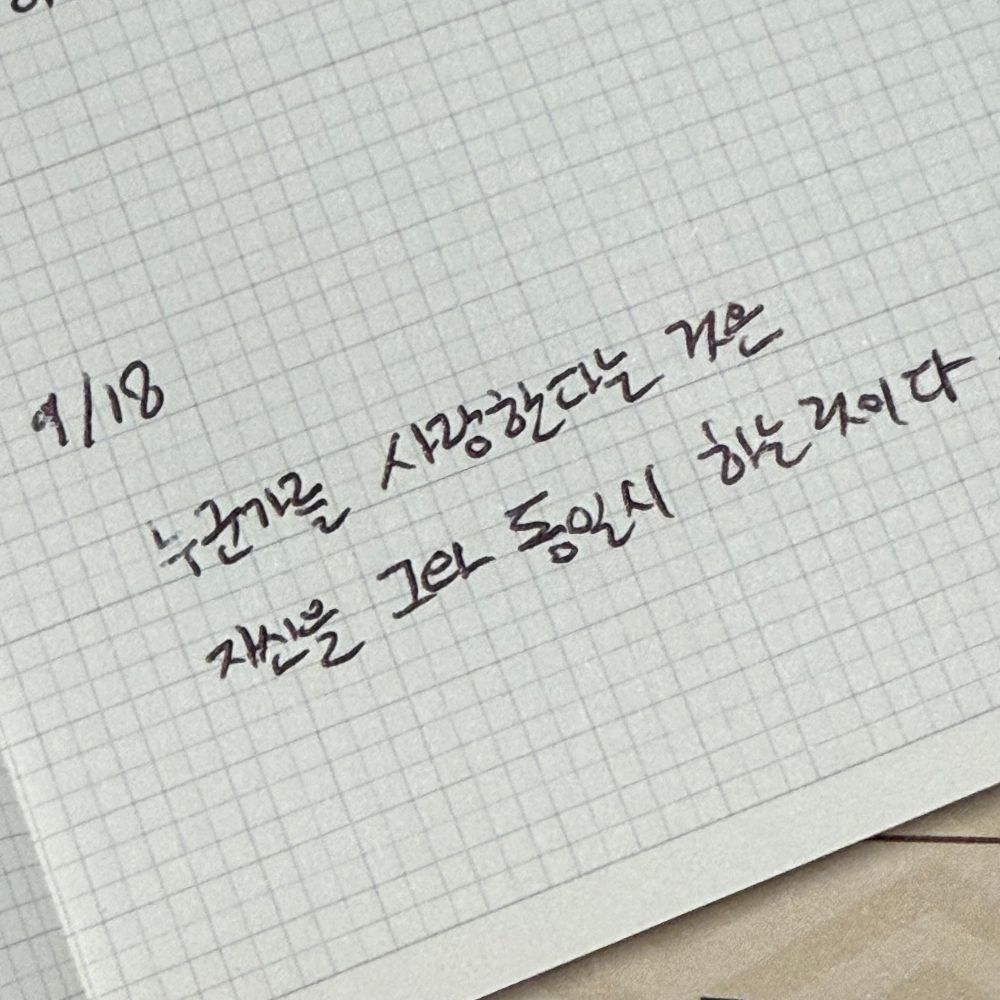 9/18
누군가를 사랑한다는 것은
자신을 그와 동일시 하는 것이다.